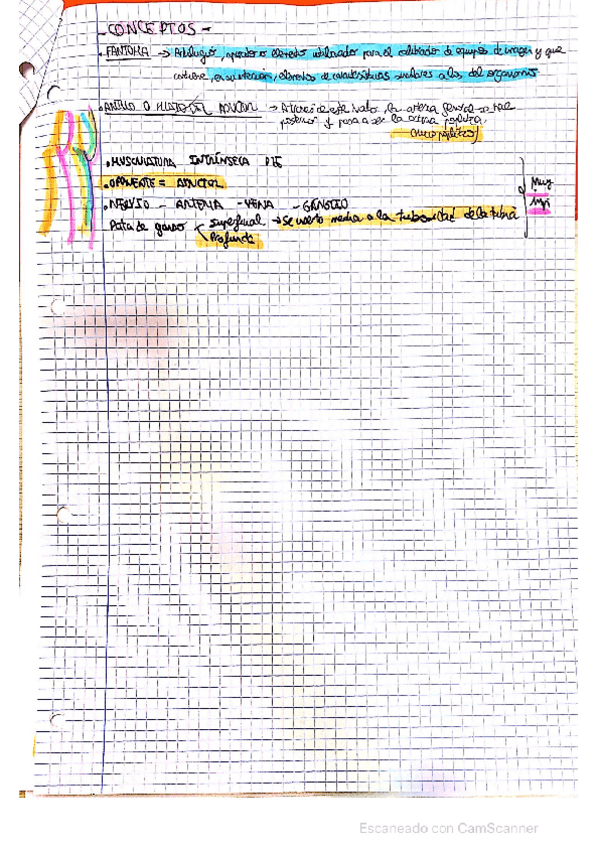 - CONCEPTOS -
• FANTOMA → Artilugio, aparato o elemento utilizado para el calibrador de equipos de imagen y que
contiene, en su interior, elementos de características similares a las del organismo
• ANILLO O HIATO DEL ADUCTOR → A través de este hiato la arteria femoral se hace
posterior y pasa a ser la arteria poplítea
(hueco poplíteo)
• MUSCULATURA INTRÍNSECA PIE
• OPONENTE = ADUCTOR
• NERVIO - ARTERIA - VENA - GANGLIO
Pata de ganso superficial → Se inserta medial a la tuberosidad de la tibia
Profunda
Muy
imp
Escaneado con CamScanner